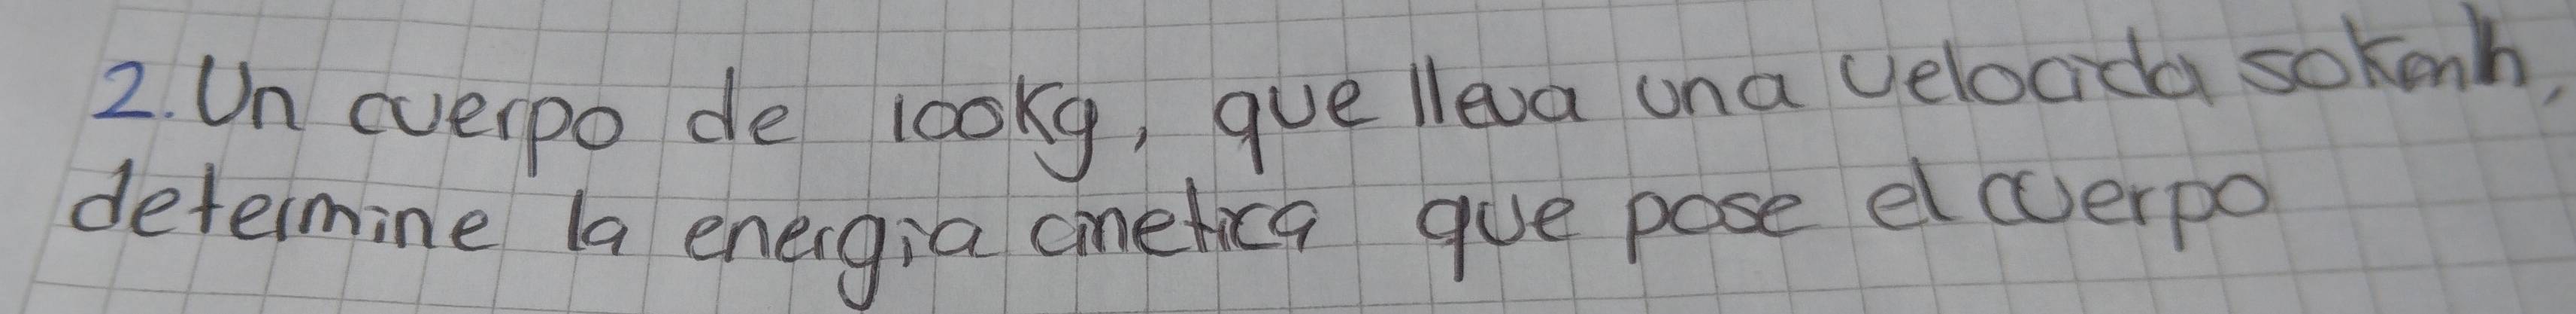 2. Un cuerpo de 100Kg, que lleva una velocida 50Kmh,
determine la energia cinetica que pose el cuerpo